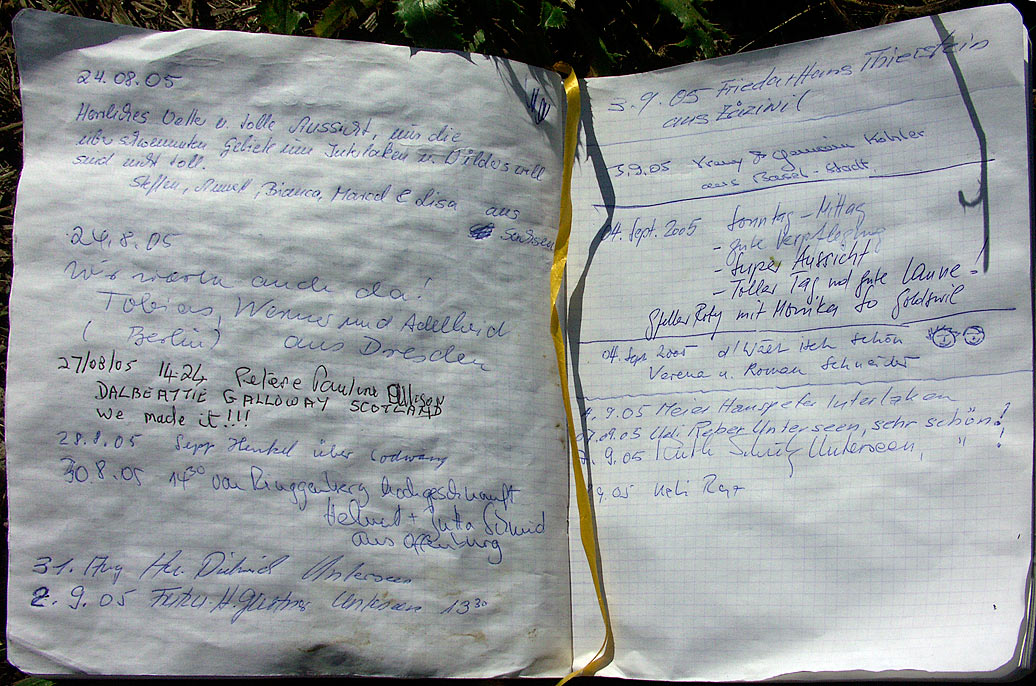 24.08.05
Herrliches Wetter u. tolle Aussicht, nur die
überschwemmten Gebiete um Interlaken u. Wilderswill
sind nicht toll.
Steffen, Bianca, Marcel & Lisa aus
Sachsen
24.8.05
Wir waren auch da!
Tobias, Werner und Adelheid
(Berlin) aus Dresden
27/08/05 14.24 Peter & Pauline
DALBEATTIE GALLOWAY SCOTLAND
We made it!!!
28.8.05 Sepp Henkel über
30.8.05 14³⁰ von Ringgenberg hochgeschnauft
Helmut + Jutta Schmid
aus Offenburg
31. Aug Unterseen
2. 9. 05 Unterseen 13³⁰
3.9.05 Frieda + Hans Thierstein
aus Zäziwil
3.9.05 Köhler
aus Basel-Stadt
04. Sept. 2005 Sonntag-Mittag
- gute Verpflegung
- Super Aussicht
- Toller Tag und gute Laune!
Steller Roty mit Monika So Goldswil
04. Sept 2005 d'Wält isch schön
Verena u. Roman Schneider
9.05 Meier Hanspeter Interlaken
07.09.05 Ueli Reber Unterseen, sehr schön!
9.05 Ruth Unterseen, " !
9.05 Ueli